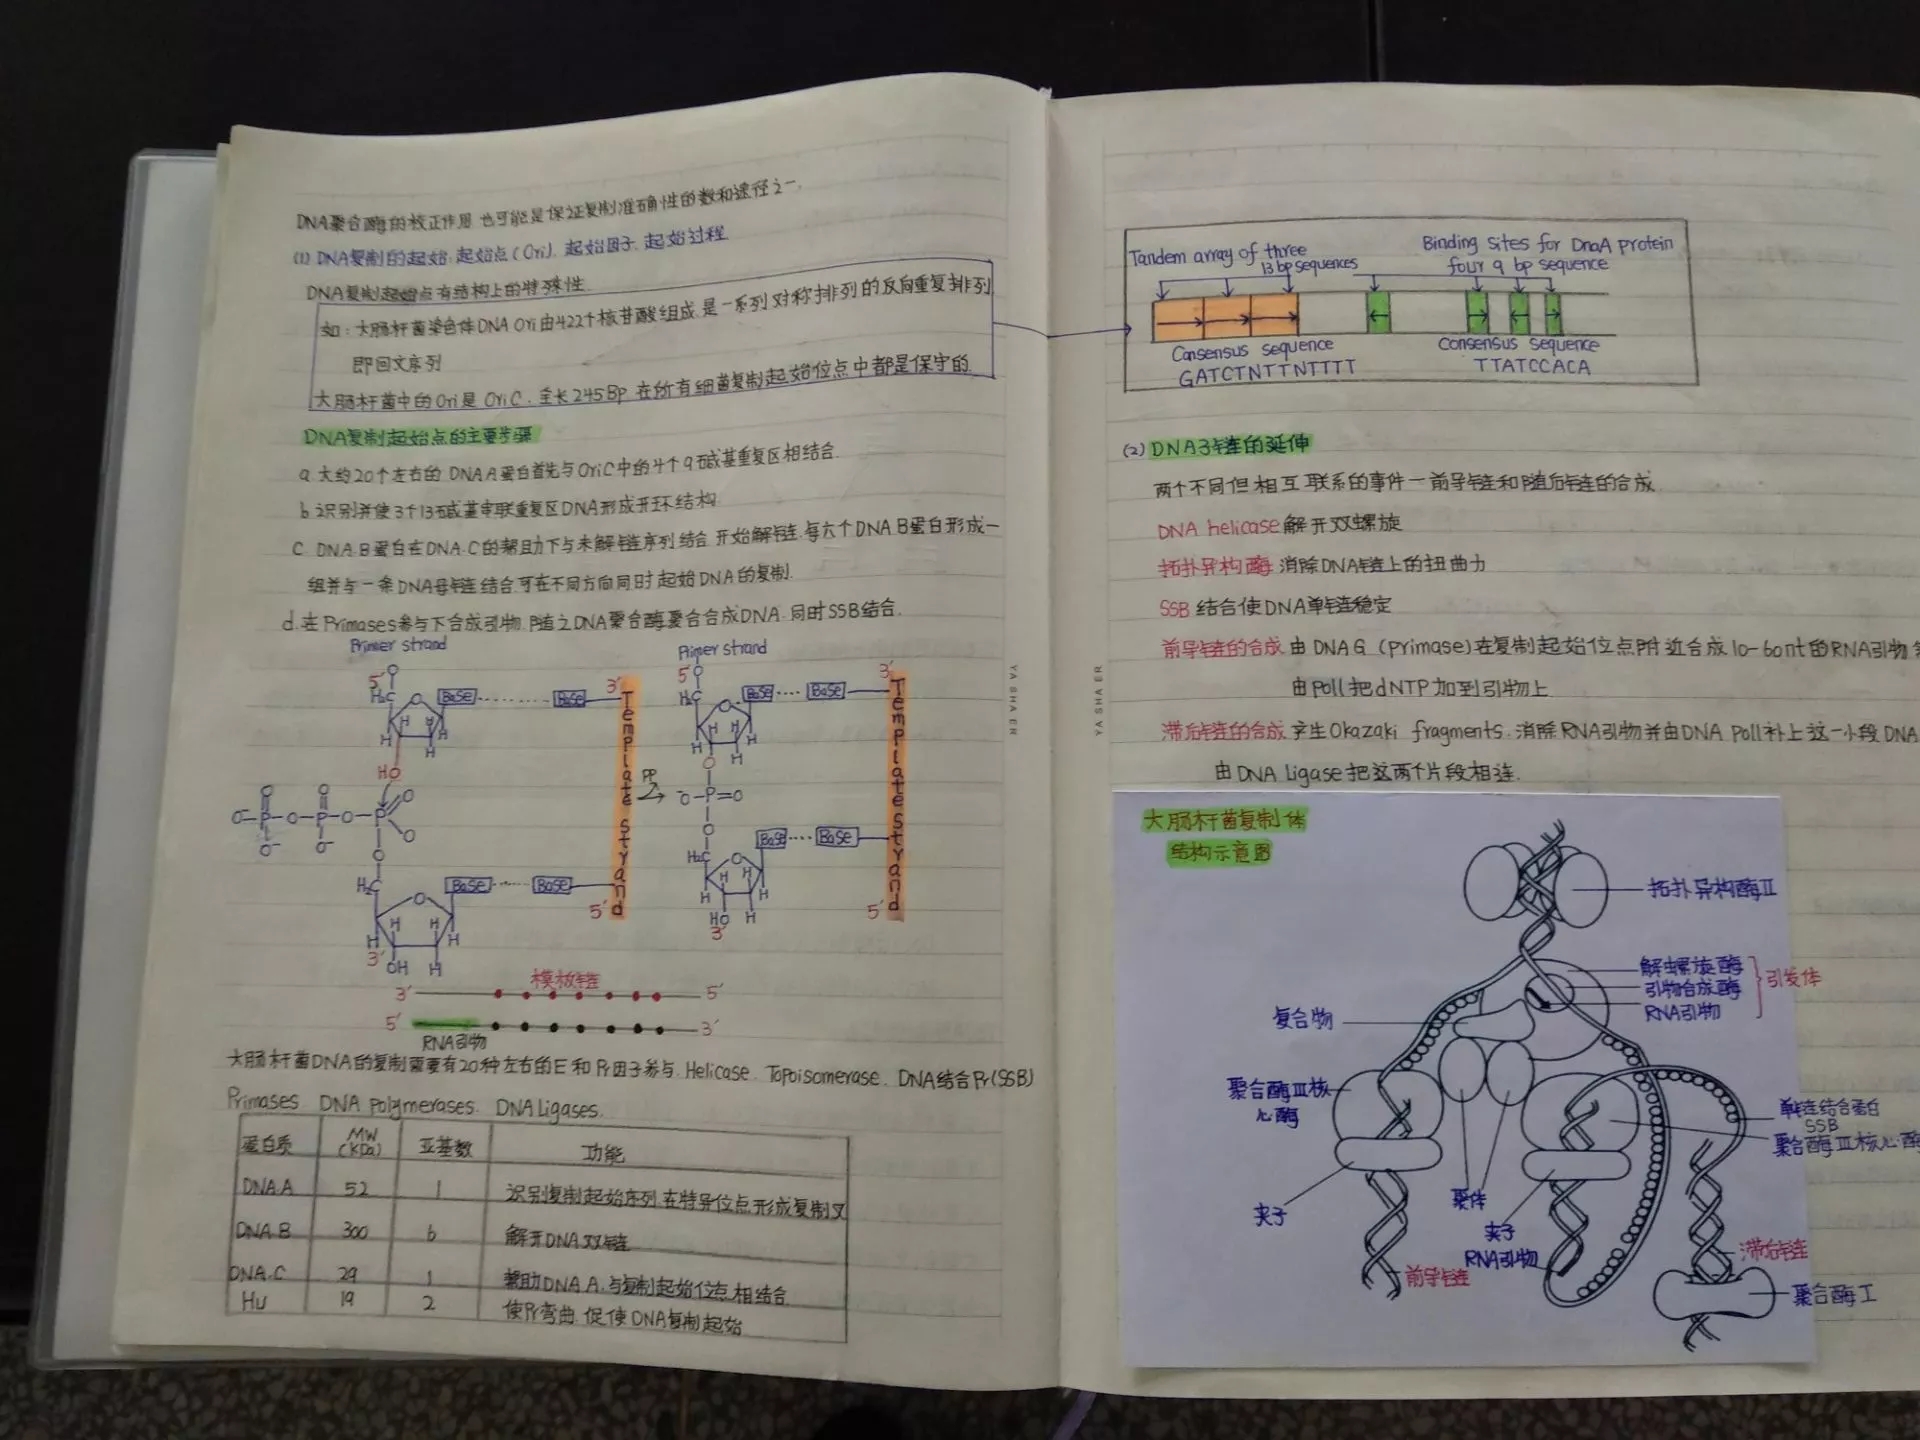 DNA聚合酶的校正作用也可能是保证复制准确性的数和途径之一.
(1) DNA复制的起始:起始点(Ori).起始因子.起始过程
DNA复制起始点有结构上的特殊性.
如:大肠杆菌染色体DNA Ori由422个核苷酸组成.是一系列对称排列的反向重复排列
即回文序列
大肠杆菌中的Ori是OriC.全长245Bp.在所有细菌复制起始位点中都是保守的.
DNA复制起始点的主要步骤
a.大约20个左右的DNAA蛋白首先与OriC中的4个9碱基重复区相结合.
b.识别并使3个13碱基串联重复区DNA形成开环结构.
C. DNA.B蛋白在DNA.C的帮助下与未解链序列结合.开始解链.每六个DNA.B蛋白形成一
组并与一条DNA母链结合.可在不同方向同时起始DNA的复制.
d.在Primases参与下合成引物.随之DNA聚合酶聚合合成DNA.同时SSB结合.
Primer strand
5′
H₂C
O
Base
Base
3′
Template strand
H
HO
O⁻
P
PPi
H₂C
Base
Base
5′
H
3′
OH
H
Primer strand
5′
H₂C
Base
Base
3′
Template strand
⁻O-P=O
H₂C
Base
Base
HO
H
3′
5′
模板链
3′
5′
5′
3′
RNA引物
大肠杆菌DNA的复制需要有20种左右的E和Pr因子参与.Helicase. Topoisomerase. DNA结合Pr(SSB)
Primases. DNA Polymerases. DNA Ligases.
蛋白质 MW (KDa) 亚基数 功能
DNA.A 52 1 识别复制起始序列.在特异位点形成复制叉
DNA.B 300 6 解开DNA双链
DNA.C 29 1 帮助DNA.A.与复制起始位点相结合
Hu 19 2 使Pr弯曲.促使DNA复制起始
YA SHA ER
YA SHA ER
Tandem array of three
13 bp sequences
Binding sites for DnaA protein
four 9 bp sequence
Consensus sequence
GATCTNTTNTTTT
Consensus sequence
TTATCCACA
(2) DNA子链的延伸
两个不同但相互联系的事件一前导链和随后链的合成.
DNA helicase解开双螺旋
拓扑异构酶 消除DNA链上的扭曲力
SSB 结合使DNA单链稳定
前导链的合成 由DNAG (primase)在复制起始位点附近合成10-60nt的RNA引物
由Poll把dNTP加到引物上.
滞后链的合成 产生Okazaki fragments.消除RNA引物并由DNA Poll补上这一小段DNA
由DNA Ligase把这两个片段相连.
大肠杆菌复制体
结构示意图
拓扑异构酶II
解螺旋酶
引物合成酶
RNA引物
引发体
复合物
聚合酶III核
心酶
单链结合蛋白
SSB
聚合酶III核心酶
夹子
聚体
夹子
RNA引物
前导链
滞后链
聚合酶I